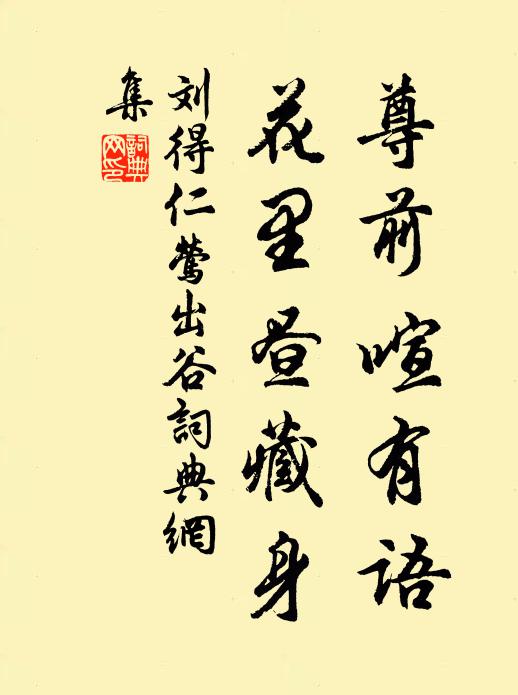 尊前喧有語
花里昼藏身
刘得仁鶯出谷詞典網
集
詞典網印